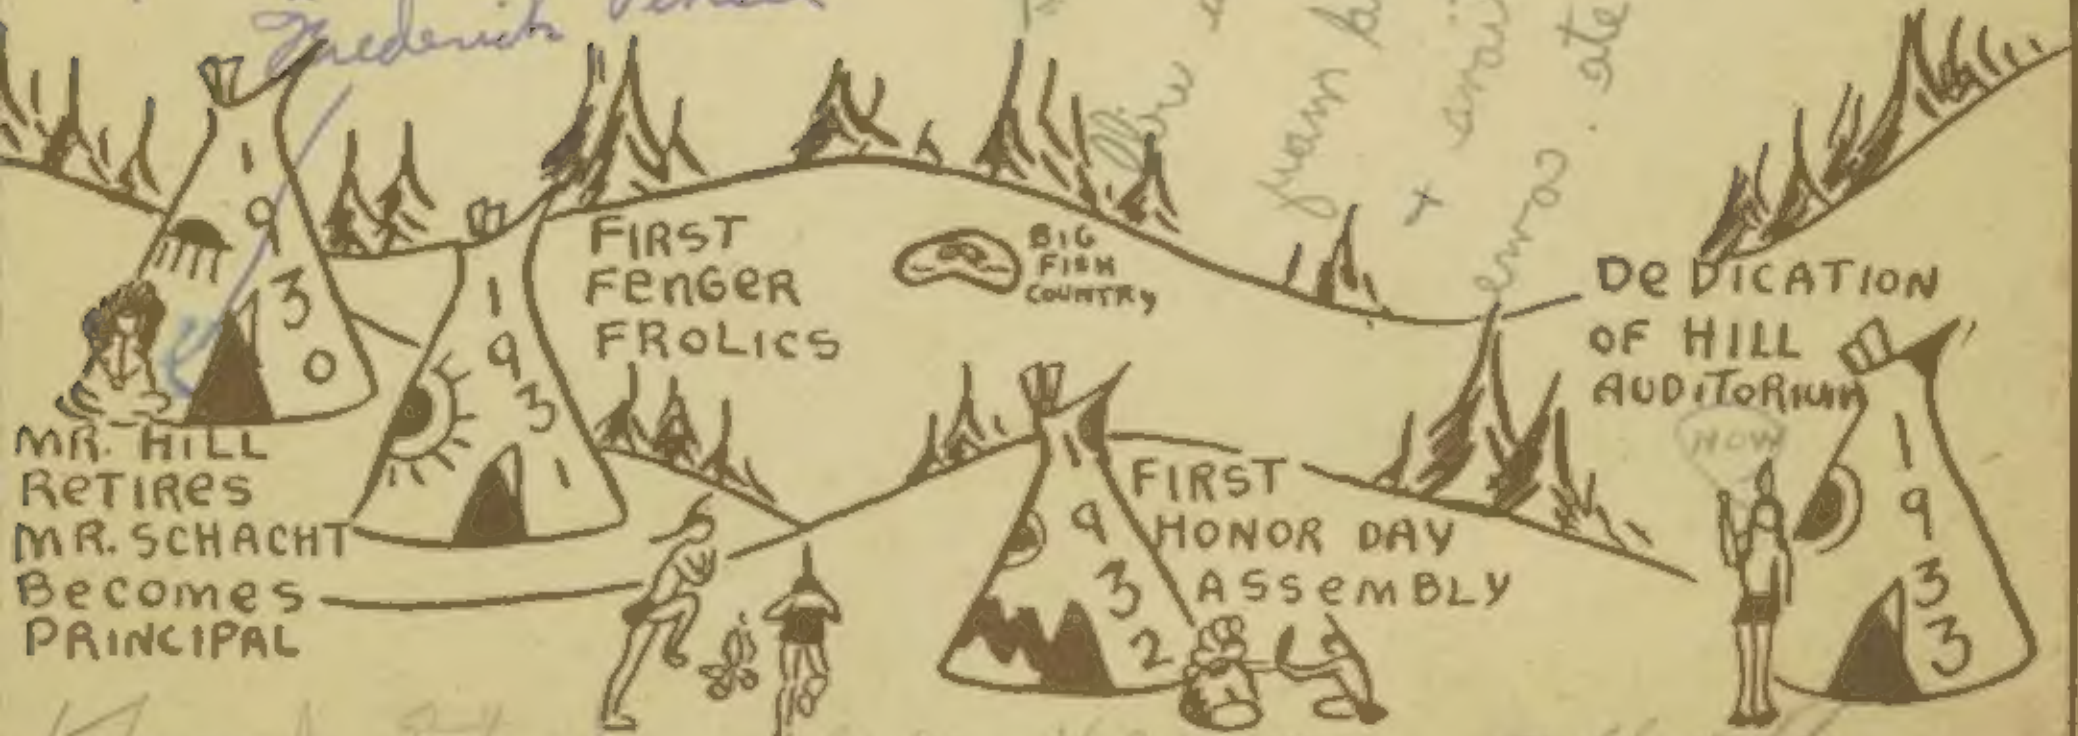 Frederick
1930
MR. HILL
RETIRES
MR. SCHACHT
BECOMES
PRINCIPAL
1931
FIRST
FENGER
FROLICS
BIG
FISH
COUNTRY
1932
FIRST
HONOR DAY
ASSEMBLY
DEDICATION
OF HILL
AUDITORIUM
HOW
1933